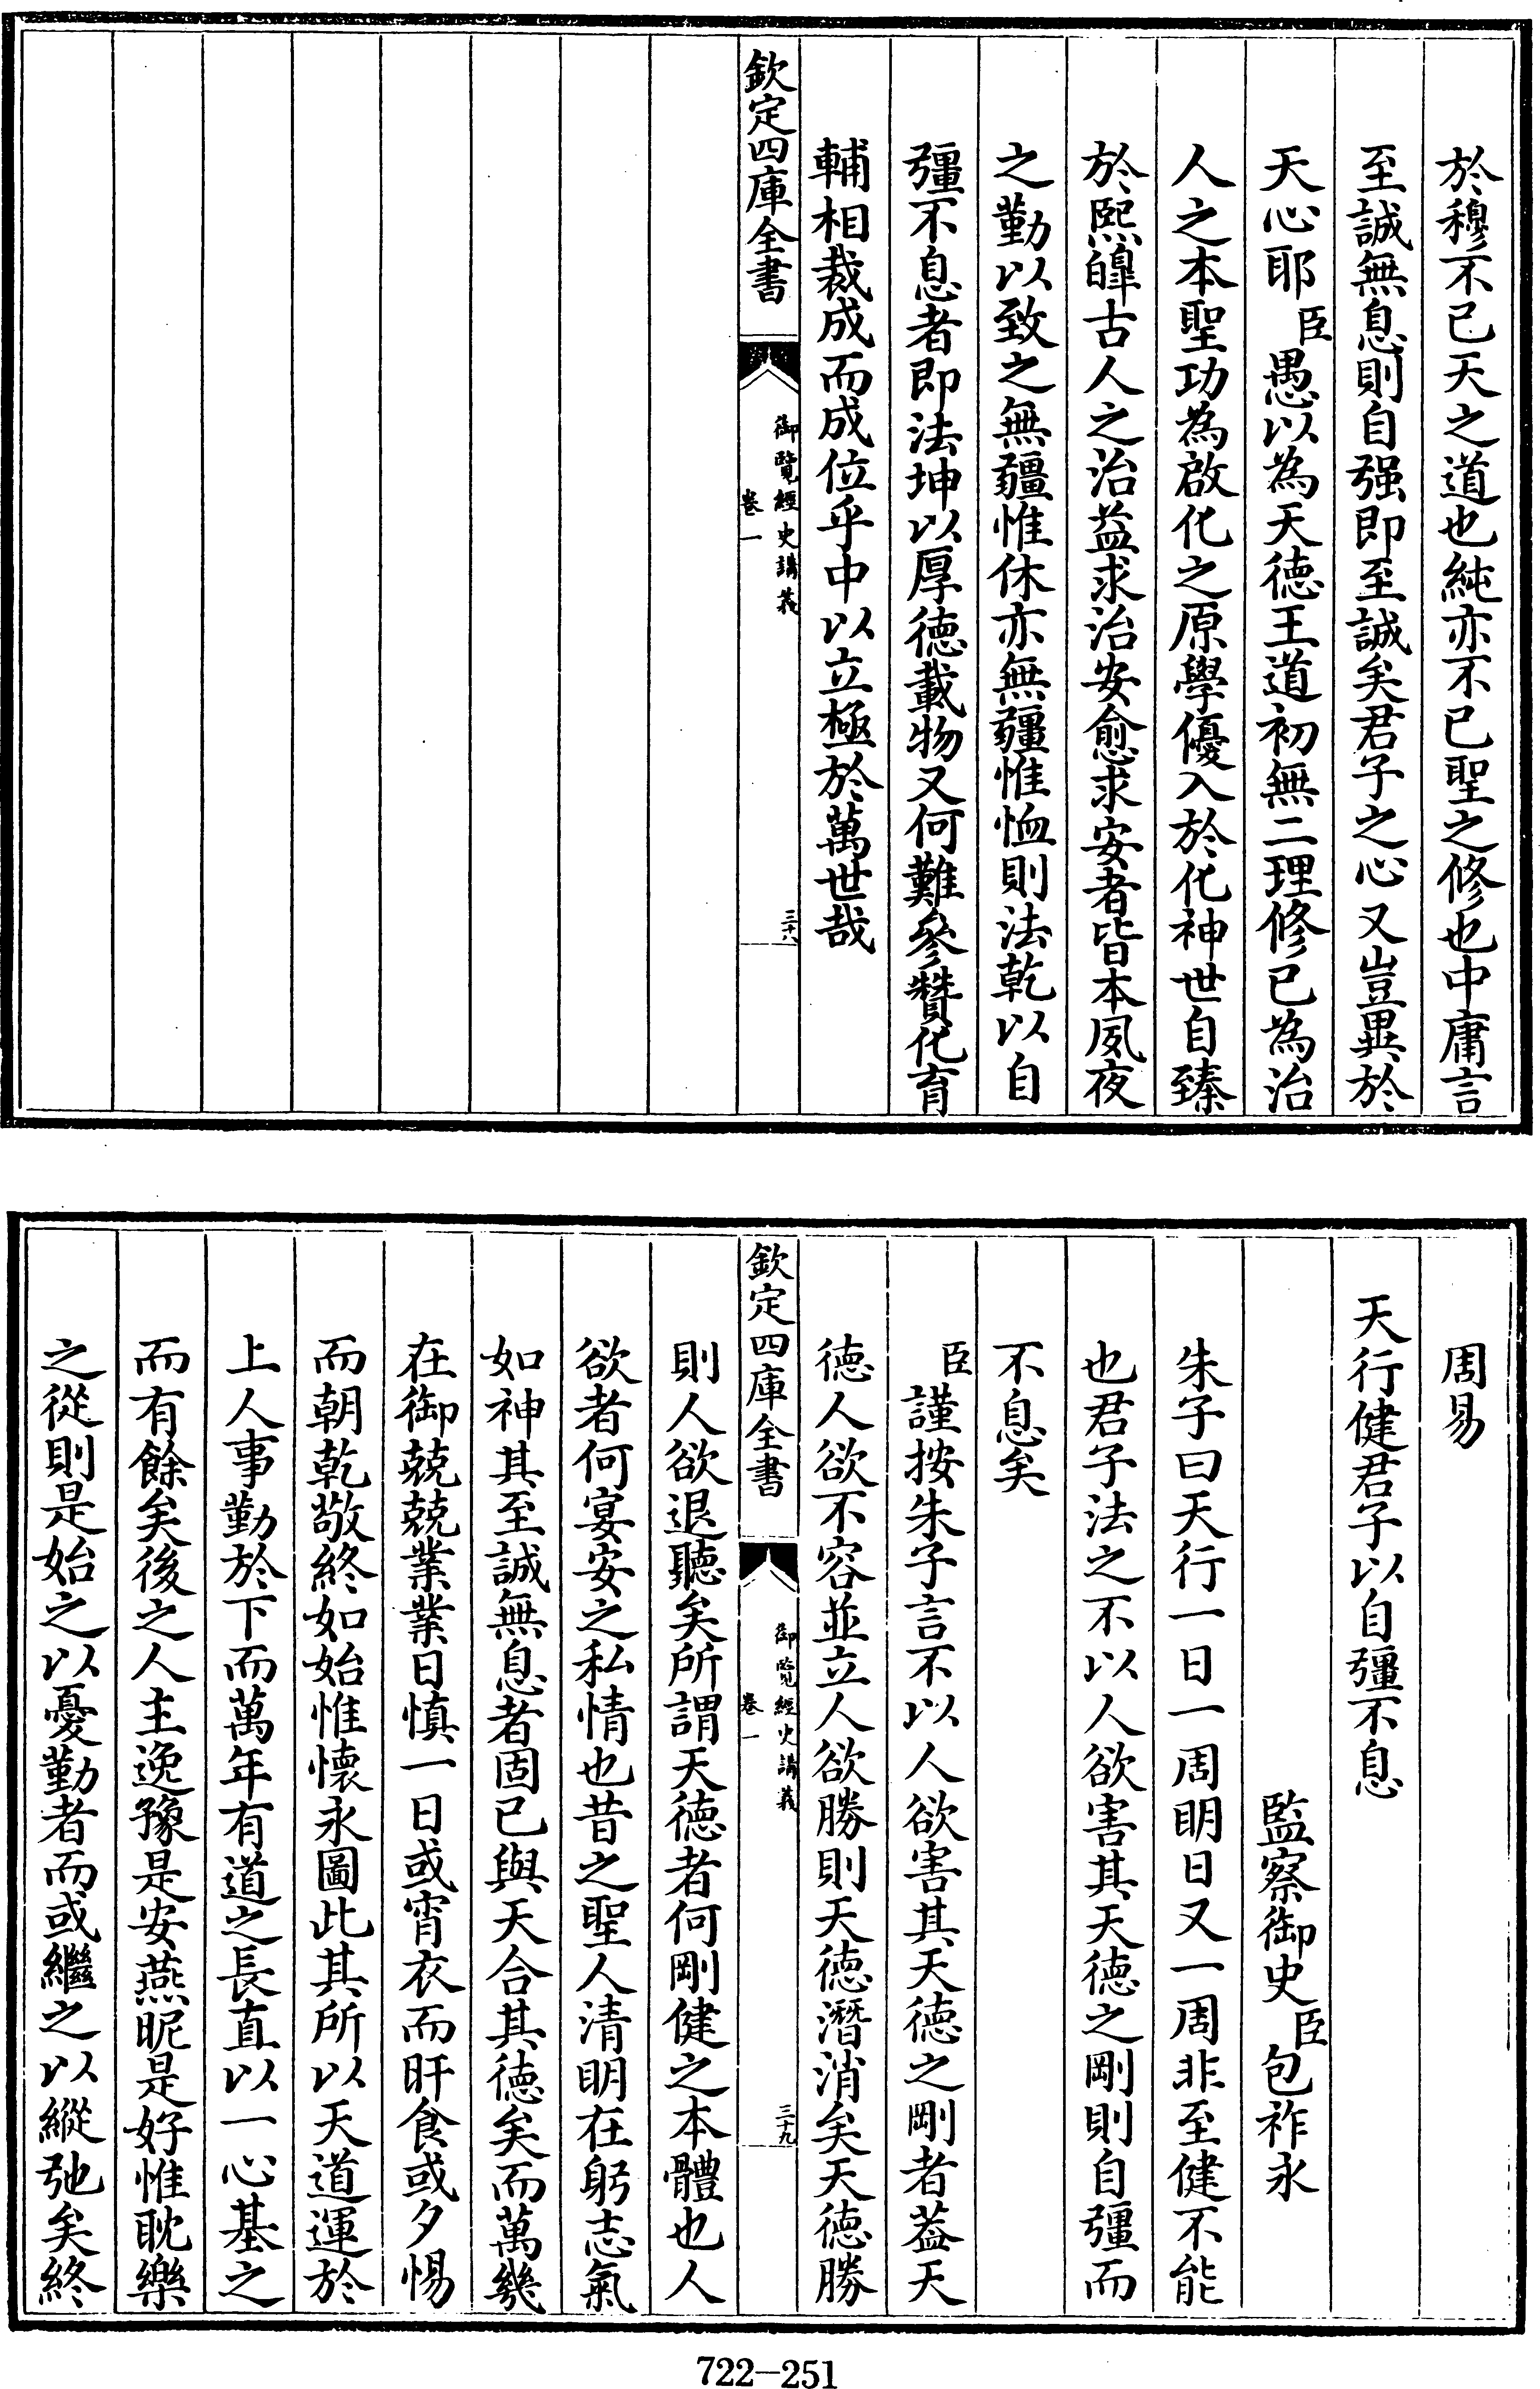 於穆不已天之道也純亦不已聖之修也中庸言
至誠無息則自强即至誠矣君子之心又豈異於
天心耶臣愚以為天德王道初無二理修己為治
人之本聖功為啟化之原學優入於化神世自臻
於熙皥古人之治益求治安愈求安者皆本夙夜
之勤以致之無疆惟休亦無疆惟恤則法乾以自
彊不息者即法坤以厚德載物又何難參贊化育
輔相裁成而成位乎中以立極於萬世哉
欽定四庫全書
御覽經史講義
卷一
三十八
周易
天行健君子以自彊不息
監察御史臣包祚永
朱子曰天行一日一周明日又一周非至健不能
也君子法之不以人欲害其天德之剛則自彊而
不息矣
臣謹按朱子言不以人欲害其天德之剛者葢天
德人欲不容並立人欲勝則天德潛消矣天德勝
欽定四庫全書
御覽經史講義
卷一
三十九
則人欲退聽矣所謂天德者何剛健之本體也人
欲者何宴安之私情也昔之聖人清明在躬志氣
如神其至誠無息者固已與天合其德矣而萬幾
在御兢兢業業日慎一日或宵衣而旰食或夕惕
而朝乾敬終如始惟懷永圖此其所以天道運於
上人事勤於下而萬年有道之長直以一心基之
而有餘矣後之人主逸豫是安燕昵是好惟耽樂
之從則是始之以憂勤者而或繼之以縱弛矣終
722-251